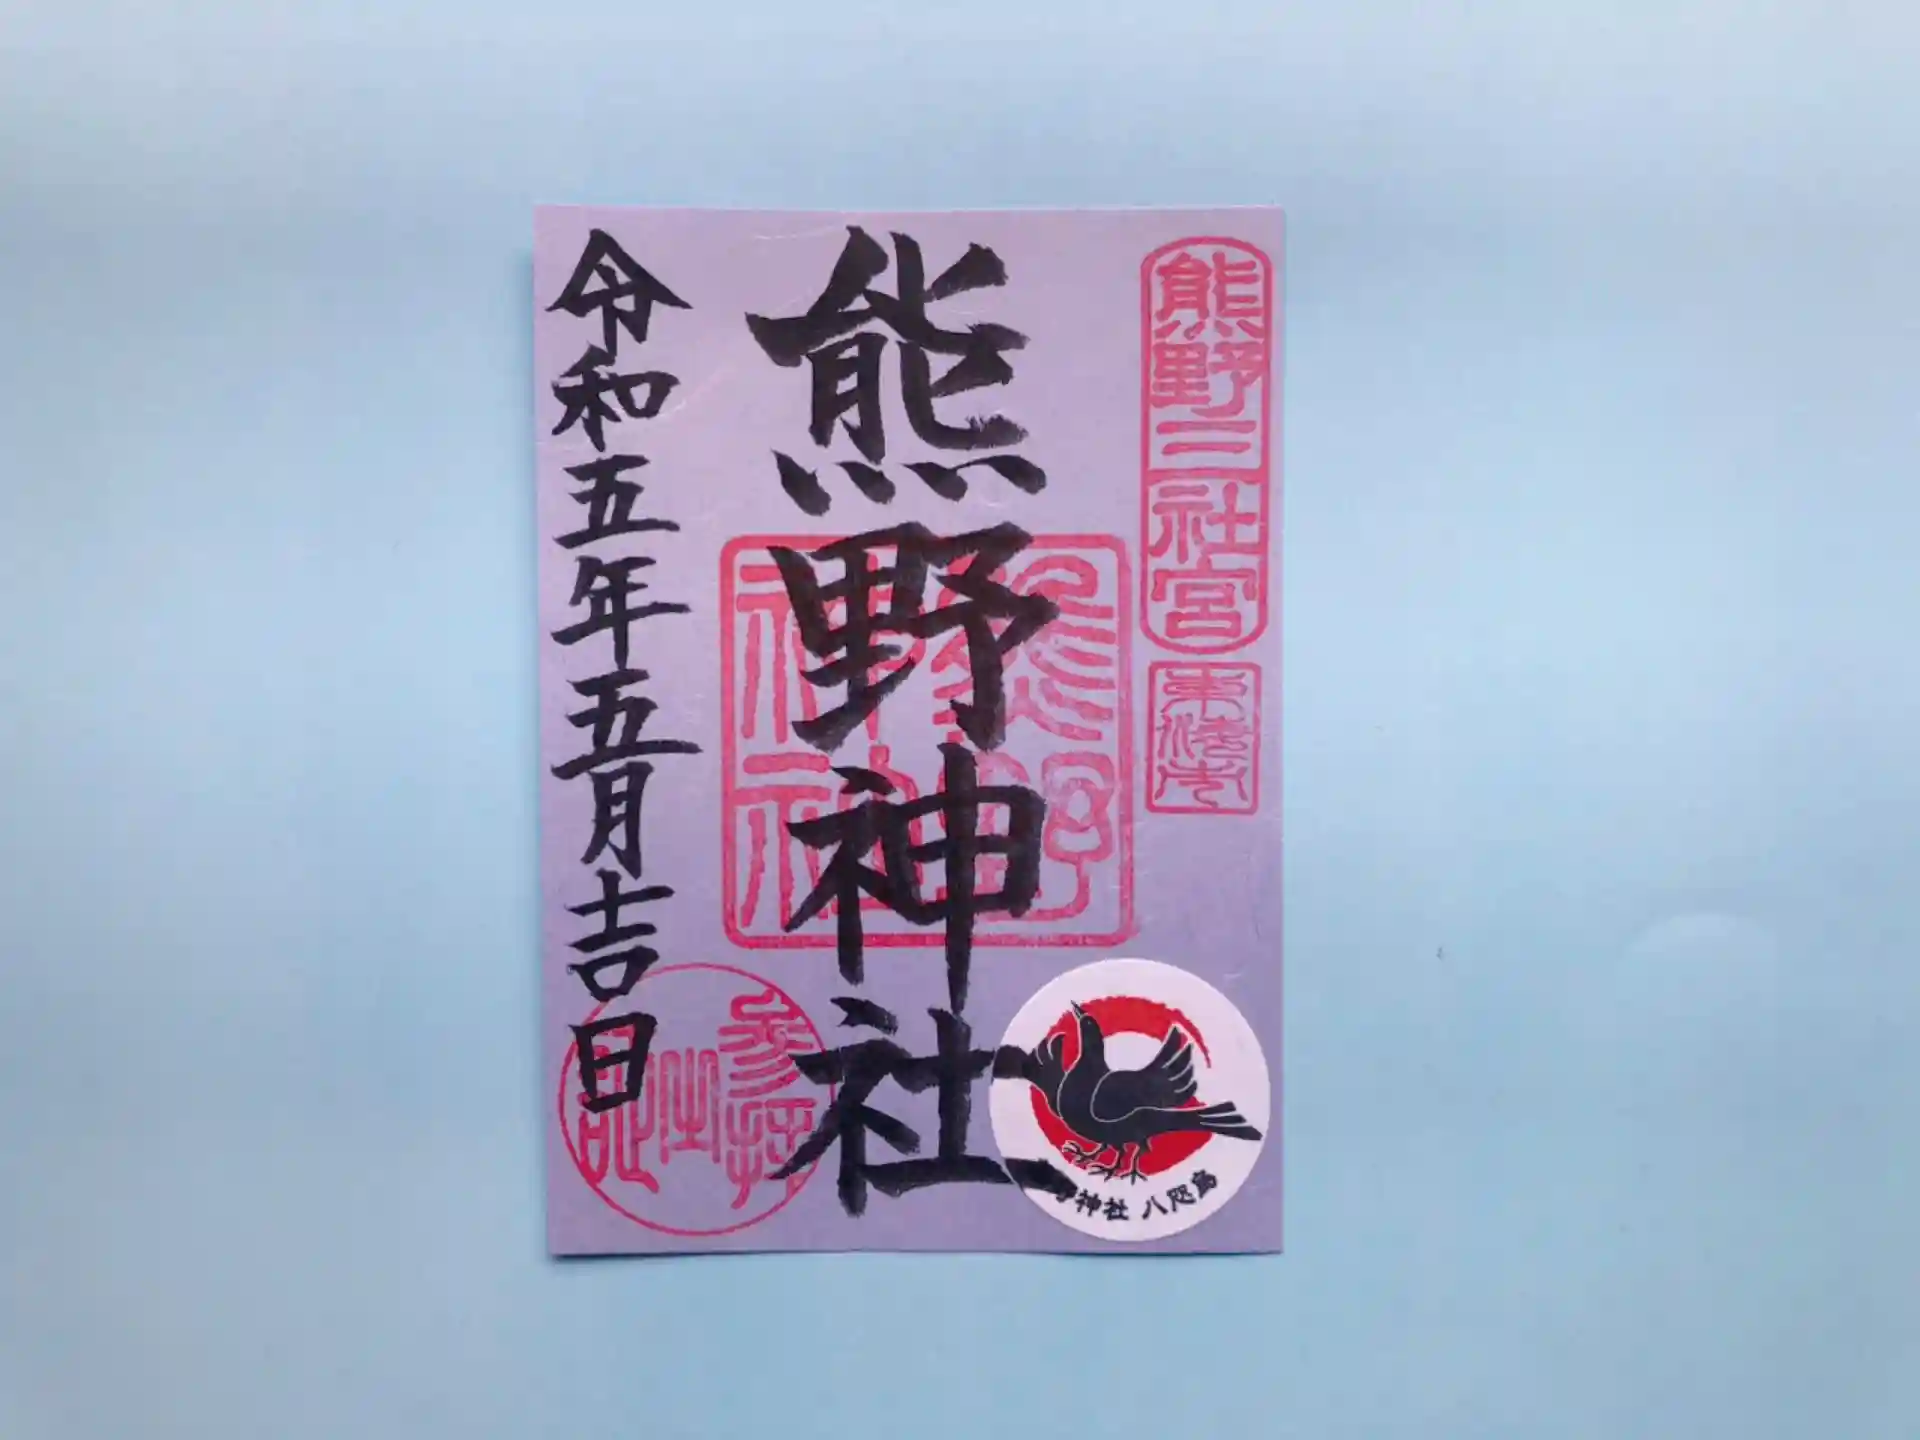 熊野三社宮
東海市
熊野神社
熊野
神社
令和五年五月吉日
参拝
之
神社 八咫烏